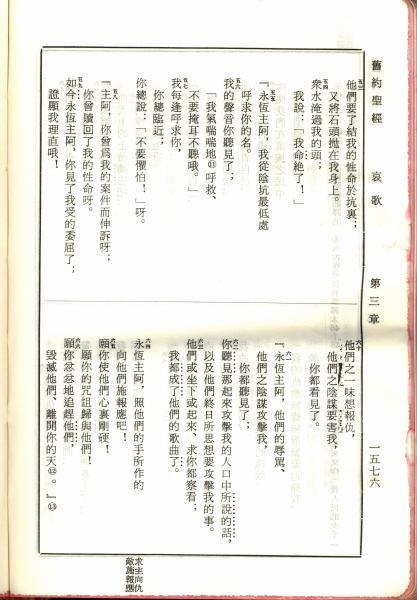 舊約聖經 哀歌 第三章 一五七六
五三他們要了結我的性命於坑裏；
又將石頭拋在我身上。
五四衆水淹過我的頭；
我說：「我命絶了！」
五五『永恆主阿，我從陰坑最低處
呼求你的名。
五六我的聲音你聽見了；
「我氣喘喘地⑪呼救、
不要掩耳不聽哦。」
五七我每逢呼求你，
你總臨近；
你總說：「不要懼怕！」呀。
五八『主阿，你曾爲我的案件而伸訴呀；
你曾贖回了我的性命呀。
五九如今永恆主阿，你見了我受的委屈了；
證顯我理直哦！
六十他們之一味想報仇，
他們之陰謀要害我，
你都看見了。
六一『永恆主阿，他們的辱罵、
他們之陰謀攻擊我，
你都聽見了；
六二你聽見那起來攻擊我的人口中所說的話，
以及他們終日所思想要攻擊我的事。
六三他們或坐下或起來、求你都察看；
我都成了他們的歌曲了。
六四永恆主阿，照他們的手所作的
向他們施報應吧！
六五願你使他們心裏剛硬！
願你的咒詛歸與他們！
六六願你忿忿地追趕他們，
毀滅他們、離開你的天⑫。』⑬
求主向仇
敵施報應